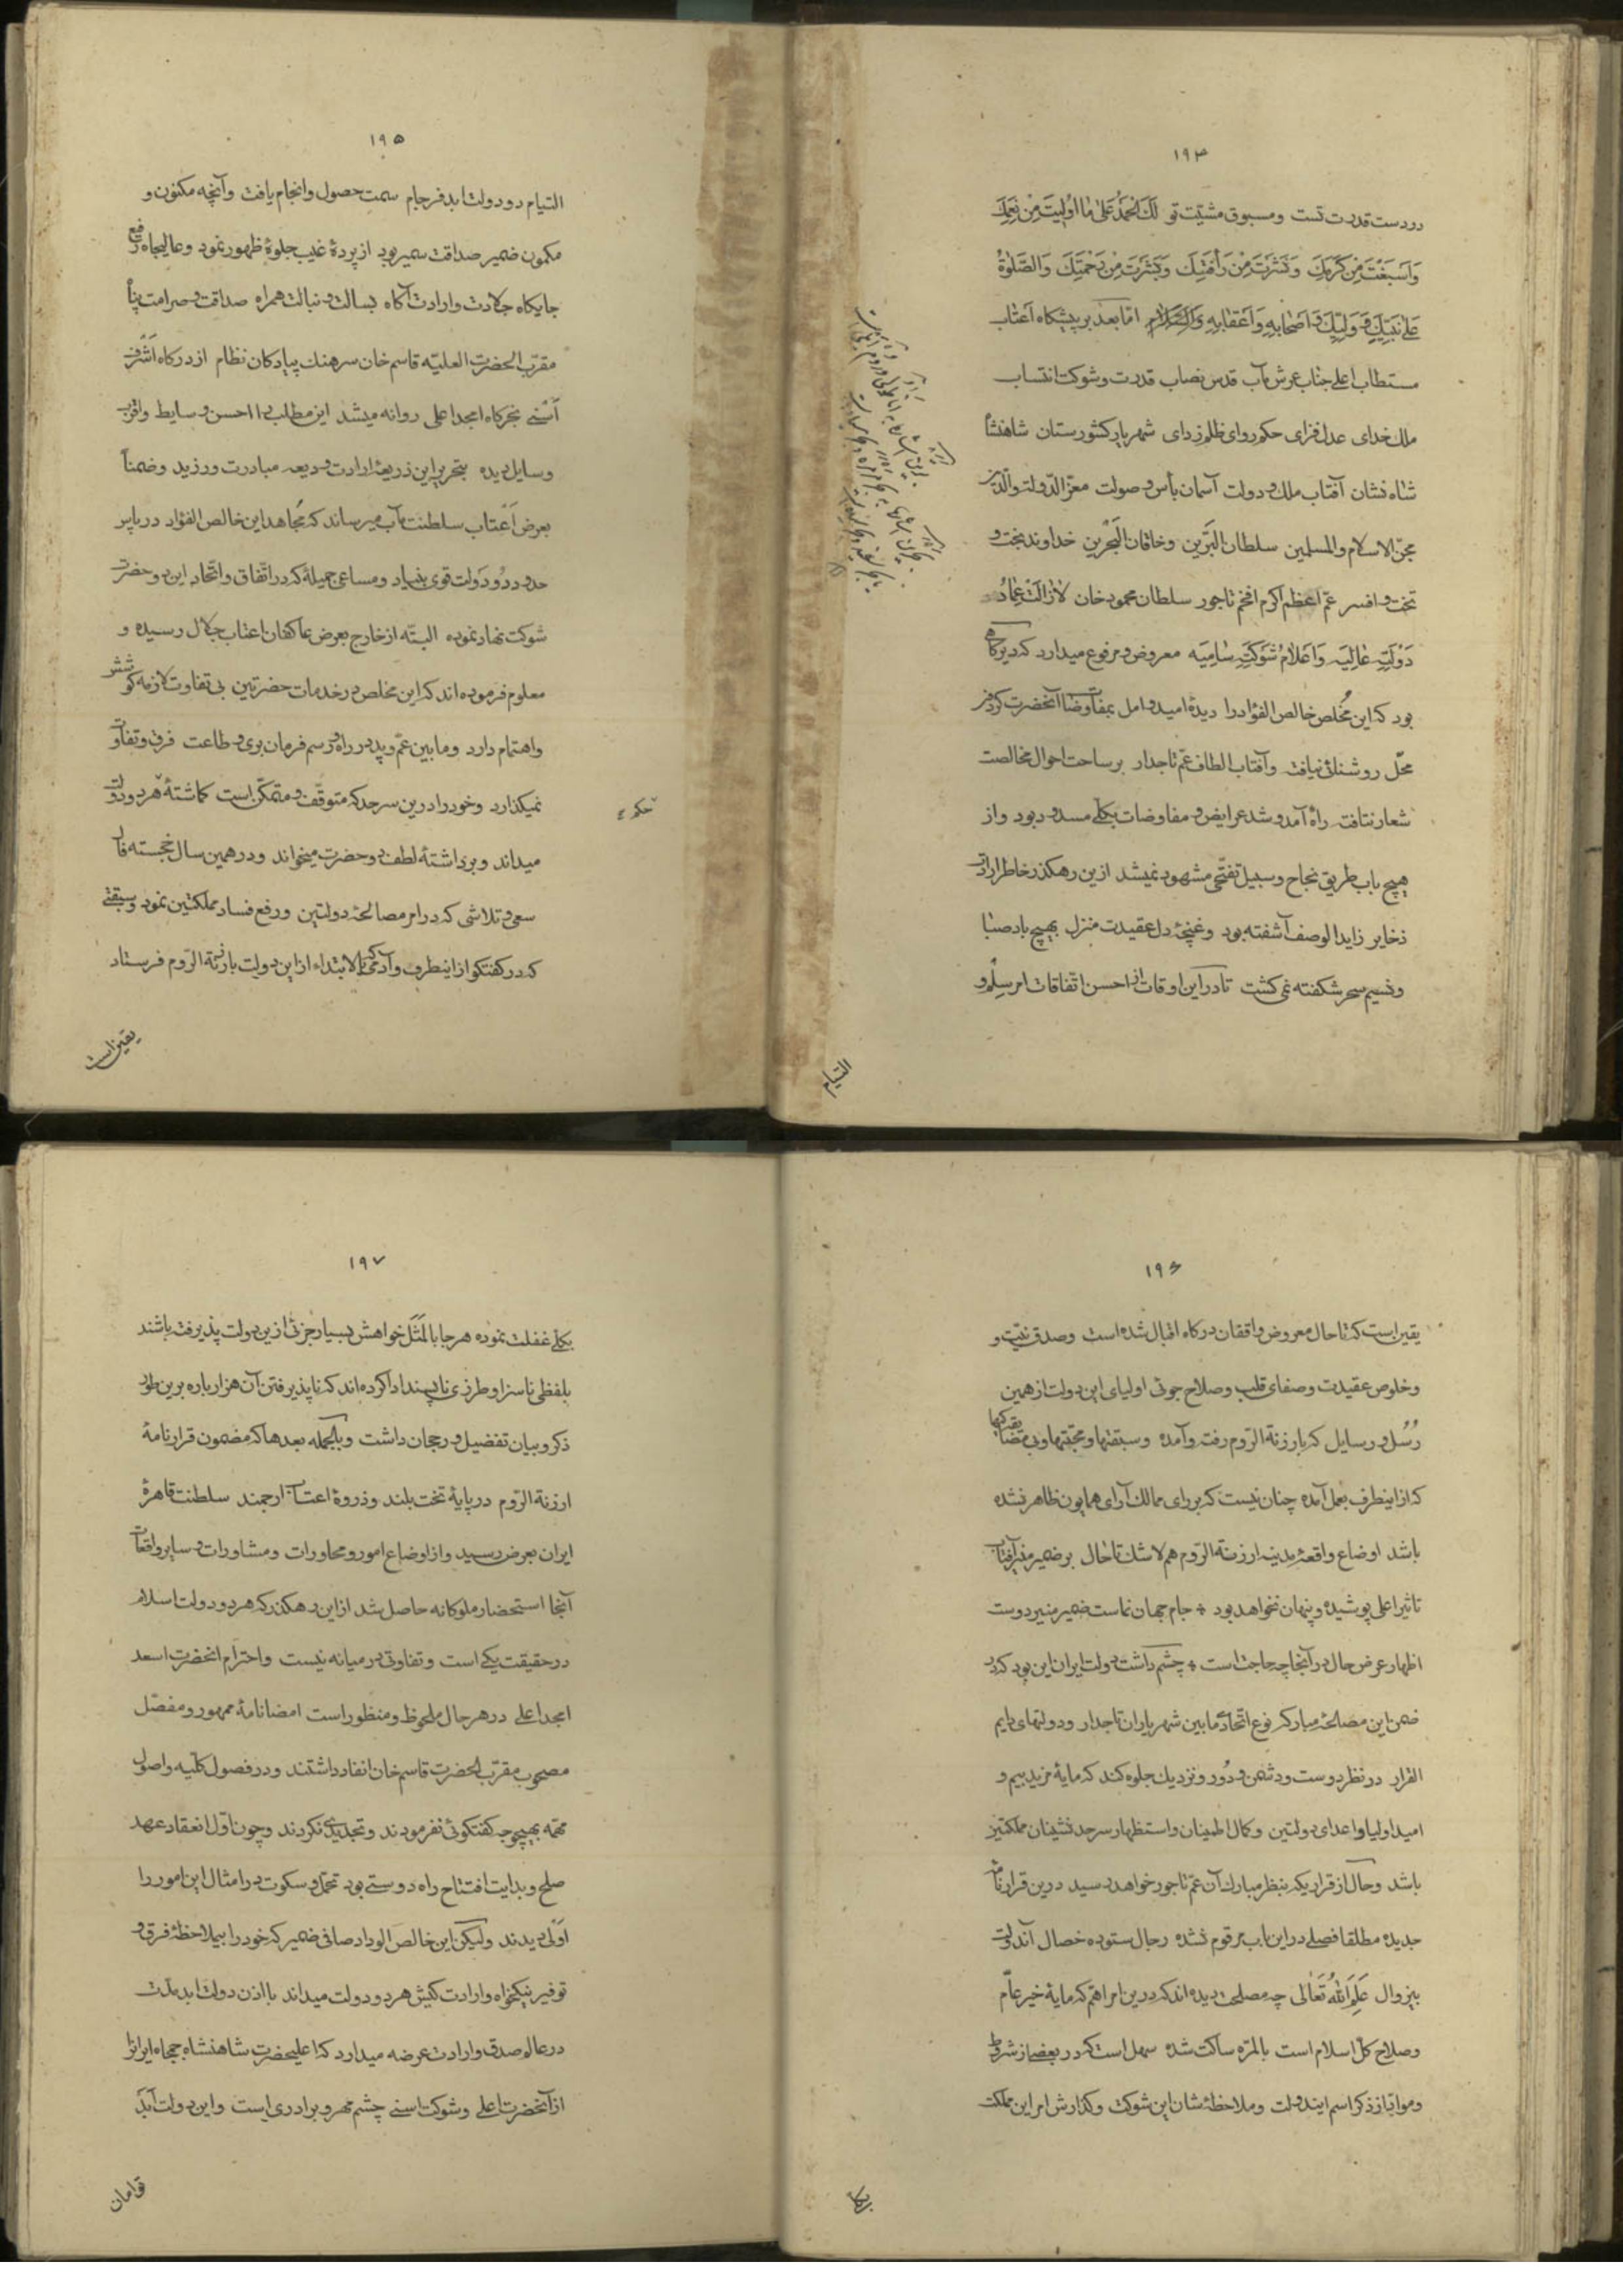 ۱۹۴
در دست قدرت تست و مسبوق مشیّت تو لَكَ الحَمدُ عَلیٰ ما اَولَیتَ مِن نِعَمِكَ
وَ اَسبَغتَ مِن کَرَمِكَ وَ نَشَرتَ مِن رَأفَتِكَ وَ کَثَّرتَ مِن رَحمَتِكَ وَ الصَّلوةُ
عَلیٰ نَبِیِّكَ وَ وَلِیِّكَ وَ اَصحابِهِ وَ اَعقابِهِ وَ السَّلام امّا بعد بر پیشکاه اعتاب
مستطاب اعلی جناب عرش مآب قدس نصاب قدرت و شوکت انتساب
ملك خدای عدل فزای حکم روای ظلم زدای شهریار کشورستان شاهنشاه
شاه نشان آفتاب ملك و دولت آسمان بأس و صولت معزّ الدّولة والدّین
مجنّ الاسلام والمسلمین سلطان البَرّین و خاقان البَحْرین خداوند بخت و
تخت و افسر عمّ اعظم اکرم افخم تاجور سلطان محمود خان لازالَت عِمادُ
دَولَتِهِ عالیَه وَ اَعلامُ شَوکَتِهِ سامِیَه معروض و مرفوع میدارد که دیرکاهی
بود که این مُخلص خالص الفؤاد را دیدهٔ امید و امل بمفاوضات آنحضرت کردون
محلّ روشنائی نیافت و آفتاب الطاف عمّ تاجدار بر ساحت احوال مخالصت
شعار نتافت راه آمد و شد عرایض و مفاوضات بکلّی مسدود بود و از
هیچ باب طریق نجاح و سبیل تفتّحی مشهود نمیشد ازین رهکذر خاطر ارادت
ذخایر زاید الوصف آشفته بود و غنچهٔ دل عقیدت منزل بهیچ باد صبا
و نسیم سحر شکفته نمی کشت تا در این اوقات از احسن اتفاقات امر سِلم و
التیام
۱۹۵
التیام دو دولت ابد فرجام سمت حصول و انجام یافت و آنچه مکنون و
مکمون ضمیر صداقت سمیر بود از پردهٔ غیب جلوهٔ ظهور نمود و عالیجاه رفیع
جایکاه جلادت و ارادت آکاه بسالت و نبالت همراه صداقت و صرامت پناه
مقرّب الحضرت العلیّه قاسم خان سرهنك پیادکان نظام از درکاه اَشْرف
اَسْنی بخرکاه امجد اعلی روانه میشد این مطلب را احسن وسایط و اقرب
وسایل دیده بتحریر این ذریعهٔ ارادت و دیعه مبادرت ورزید و ضمناً
بعرض اَعْتاب سلطنت مآب میرساند که مُجاهد این خالص الفؤاد در باب
حدود دُو دَولت قوی بنیاد و مساعی جمیلهٔ که در اتّفاق و اتّحاد این دو حضرت
شوکت نهاد نموده البتّه از خارج بعرض عاکفان اعتاب جلال رسیده و
معلوم فرموده اند که این مخلص در خدمات حضرتین بی تفاوت لازمه کوشش
و اهتمام دارد و ما بین عمّ و پدر در راه و رسم فرمان بری و طاعت فرق و تفاوت
نمیکذارد و خود را درین سرحد که متوقّف و متمکّن است کماشتهٔ هر دو دولت
میداند و برداشتهٔ لطف دو حضرت میخواند و در همین سال خجسته فال
سعی و تلاشی که در امر مصالحهٔ دولتین و رفع فساد مملکتین نمود و سبقتی
که در کفتکو از اینطرف و آدمی که بالابتداء از این دولت بارزنة الرّوم فرستاد
یقین است
۱۹۶
یقین است که تا حال معروض واقفان درکاه اقبال شده است و صدق نیّت و
و خلوص عقیدت و صفای قلب و صلاح جوئی اولیای این دولت از همین
رُسُل و رسایل که بارزنة الرّوم رفت و آمده و سبقتها و محبّتها و بی مضایقه کیها
که از اینطرف بعمل آمده چنان نیست که بر رای ممالك آرای همایون ظاهر نشده
باشد اوضاع واقعهٔ مدینه ارزنة الرّوم هم لا شك تا حال بر ضمیر منیر آفتاب
تاثیر اعلی پوشیده و پنهان نخواهد بود ٭ جام جهان نماست ضمیر منیر دوست
اظهار عرض حال در آنجا چه حاجت است ٭ چشم داشت دولت ایران این بود که در
ضمن این مصالحهٔ مبارکه نوع اتّحاد ما بین شهریاران تاجدار و دولتهای دایم
القرار در نظر دوست و دشمن و دُور و نزدیك جلوه کند که مایهٔ مزید بیم و
امید اولیا و اعدای دولتین و کمال اطمینان و استظهار سرحد نشینان مملکتین
باشد و حال از قراریکه بنظر مبارك آن عمّ تاجور خواهد رسید درین قرارنامهٔ
جدیده مطلقا فصلی در این باب مرقوم نشده رجال ستوده خصال آندولت
بیزوال عَلِمَ اللهُ تَعَالی چه مصلحت دیده اند که درین امر اهمّ که مایهٔ خیر عامّ
و صلاح کلّ اسلام است بالمرّه ساکت شده سهل است که در بعضی از شروط
و موادّ باز ذکر اسم ایندولت و ملاحظهٔ شان این شوکت و کذارش امر این مملکت
بکلّی
۱۹۷
بکلّی غفلت نموده هر جا بالمَثَل خواهش بسیار جزئی ازین دولت پذیرفته باشند
بلفظی ناسزا و طرزی ناپسند ادا کرده اند که ناپذیرفتن آن هزار باره برین طور
ذکر و بیان تفضیل و رجحان داشت و بالجمله بعدها که مضمون قرارنامهٔ
ارزنة الرّوم در پایهٔ تخت بلند و ذروهٔ اعتاب ارجمند سلطنت قاهرهٔ
ایران بعرض رسید و از اوضاع امور و محاورات و مشاورات و سایر واقعات
آنجا استحضار ملوکانه حاصل شد از این رهکذر که هر دو دولت اسلام
در حقیقت یکی است و تفاوتی در میانه نیست و احترام انحضرت اسعد
امجد اعلی در هر حال ملحوظ و منظور است امضا نامهٔ ممهور و مفصّل
مصحوب مقرّب الحضرت قاسم خان انفاد داشتند و در فصول کلّیه و اصول
مهمّه بهیچوجه کفتکوئی نفرمودند و تجدیدی نکردند و چون اوّل انعقاد عهد
صلح و بدایت افتتاح راه دوستی بود تحمّل و سکوت در امثال این امور را
اَولی دیدند و لیکن این خالص الوداد صافی ضمیر که خود را بیملاحظهٔ فرق و
توفیر نیکخواه و ارادت کیش هر دو دولت میداند با اذن دولت ابد مدّت
در عالم صدق و ارادت عرضه میدارد که اعلیحضرت شاهنشاه جمجاه ایرانرا
از آنحضرت اعلی و شوکت اسنی چشم مهر و برادری است و این دولت ابد
توامان